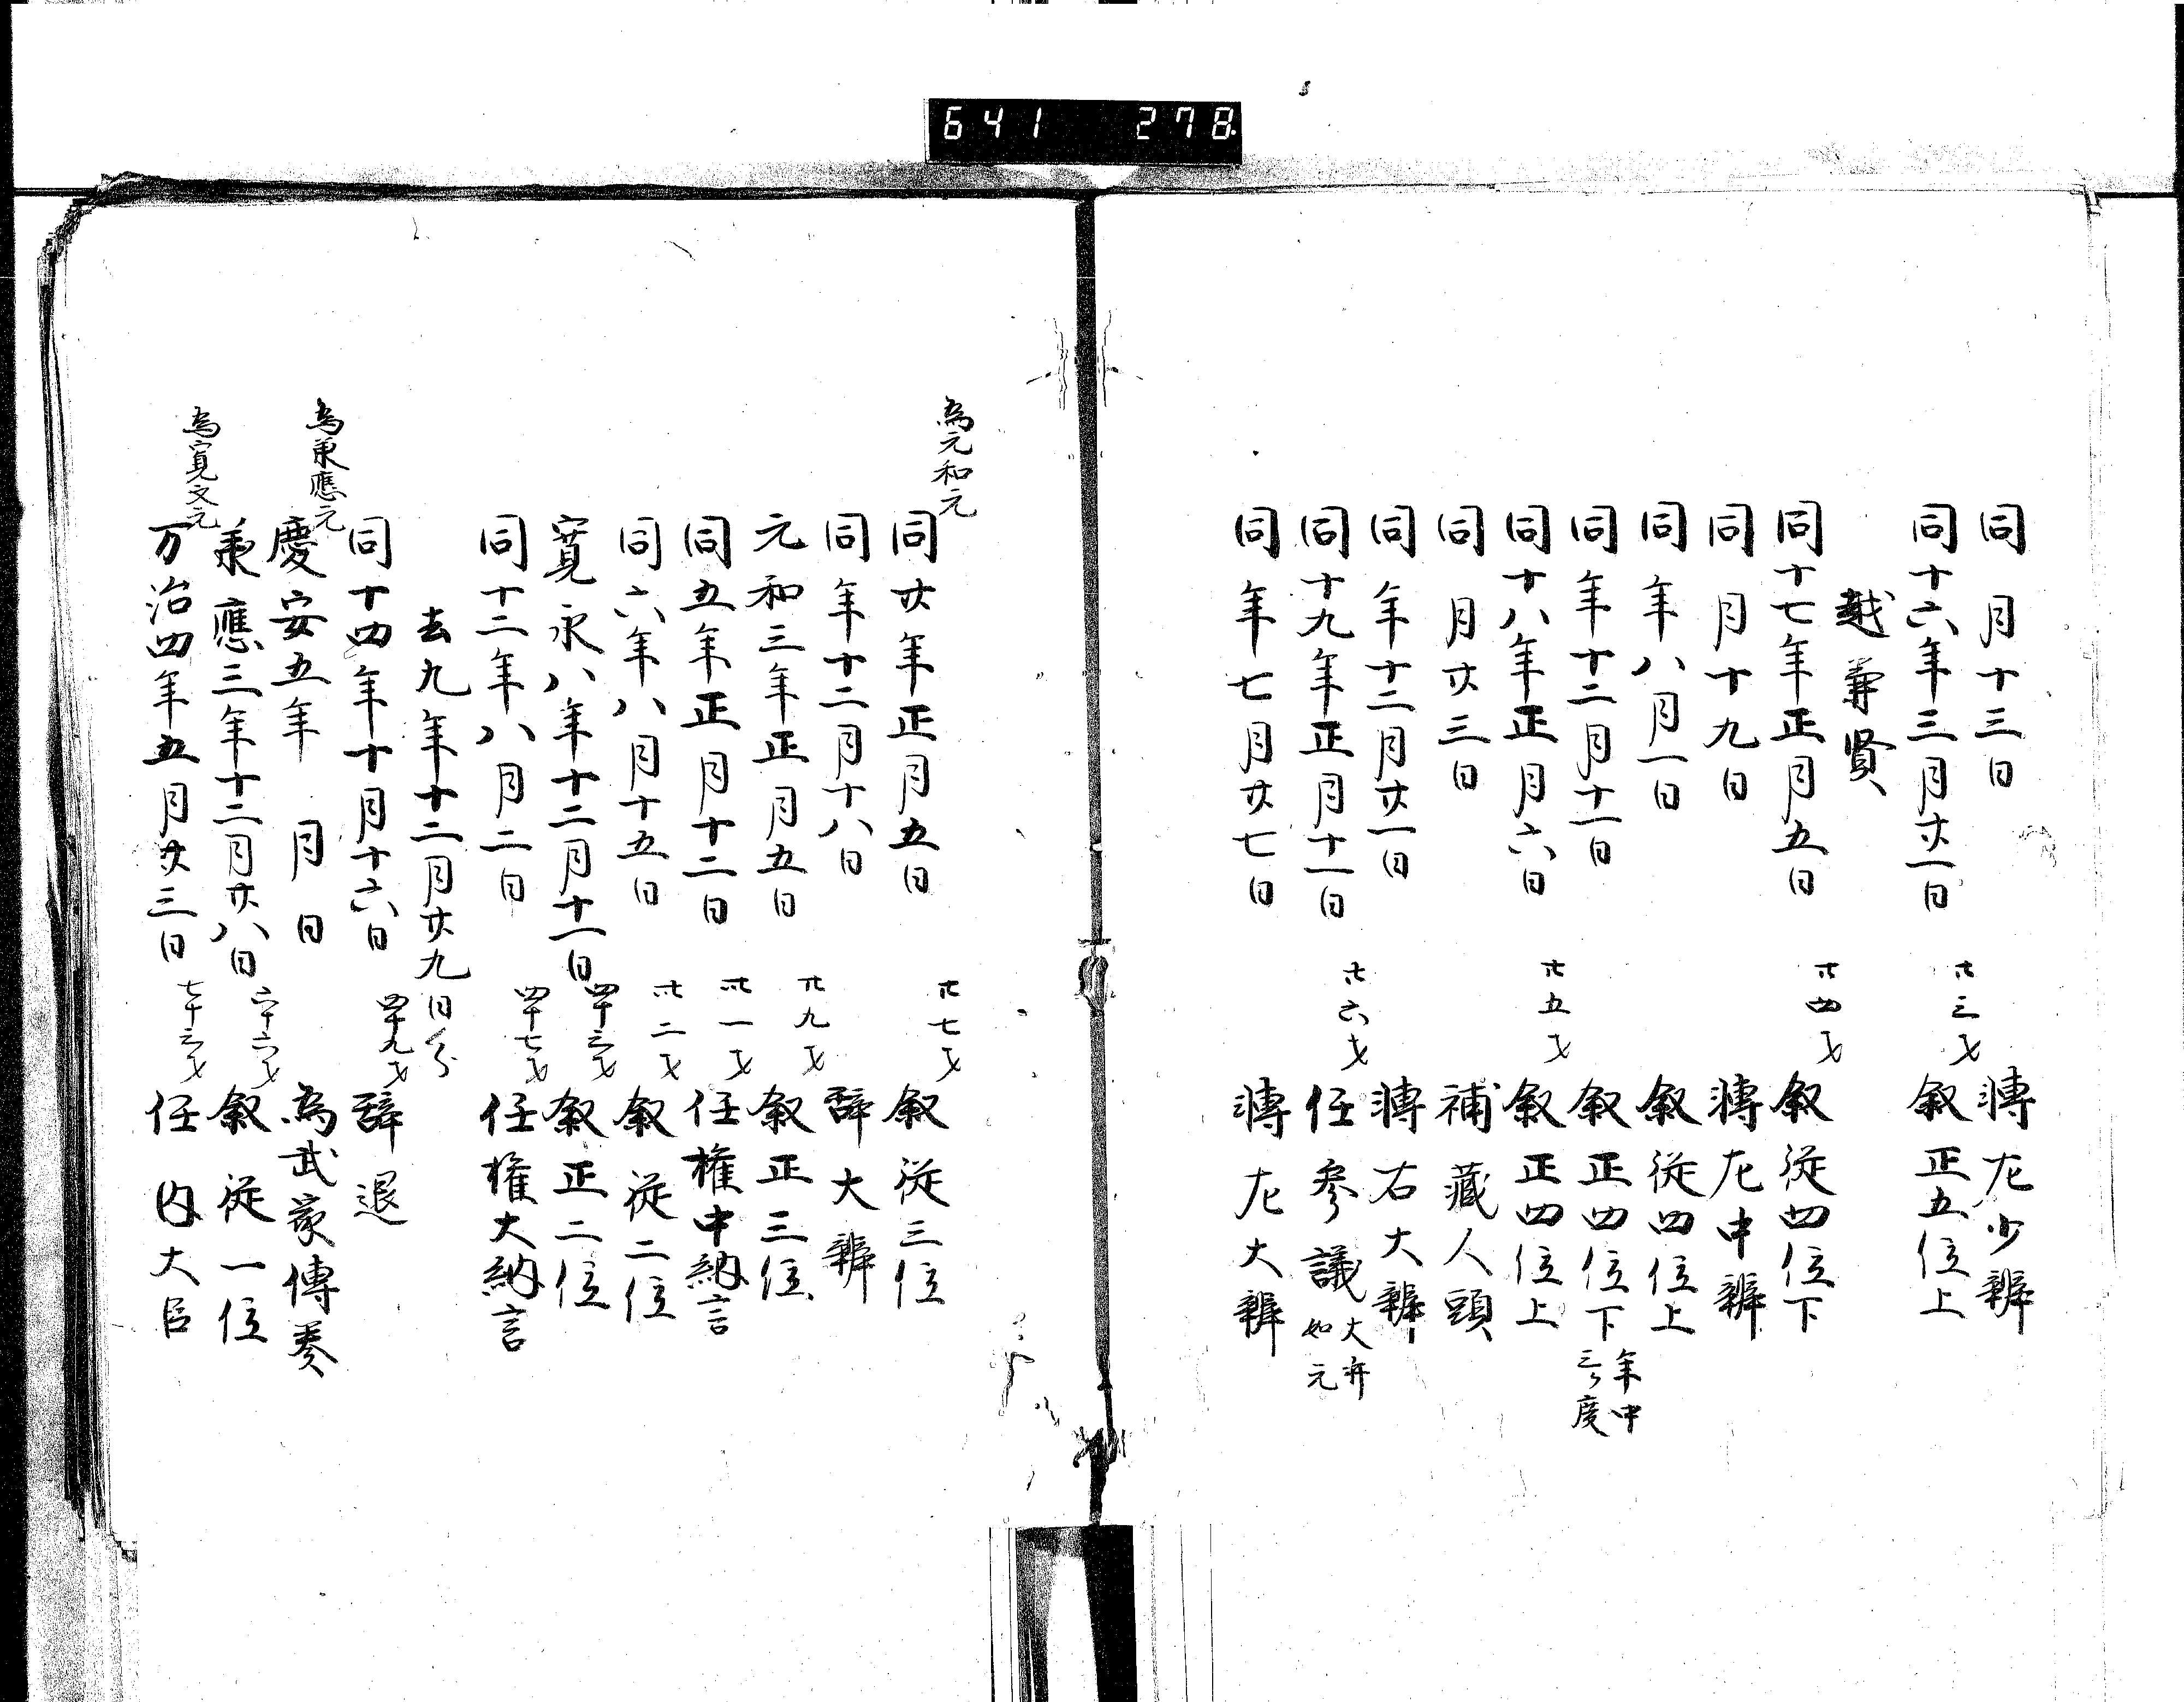 641 278
同 月十三日 轉左少辨
同十六年三月廿一日 廿三才 叙正五位上
越兼賢
同十七年正月五日 廿四才 叙従四位下
同 月十九日 轉左中辨
同 年八月一日 叙従四位上
同 年十二月十一日 叙正四位下 年中三ケ度
同十八年正月六日 廿五才 叙正四位上
同 月廿三日 補蔵人頭
同 年十二月廿一日 轉右大辨
同十九年正月十一日 廿六才 任参議 大弁如元
同 年七月廿七日 轉左大辨
為元和元
同廿年正月五日 廿七才 叙従三位
同年十二月十八日 辞大辨
元和三年正月五日 廿九才 叙正三位
同五年正月十二日 卅一才 任権中納言
同六年八月十五日 卅二才 叙従二位
寛永八年十二月十一日 四十三才 叙正二位
同十二年八月二日 四十七才 任権大納言
去九年十二月廿九日分
同十四年十月十六日 四十九才 辞退
為承應元
慶安五年 月 日 為武家傳奏
承應三年十二月廿八日 六十六才 叙従一位
為寛文元
万治四年五月廿三日 七十三才 任内大臣